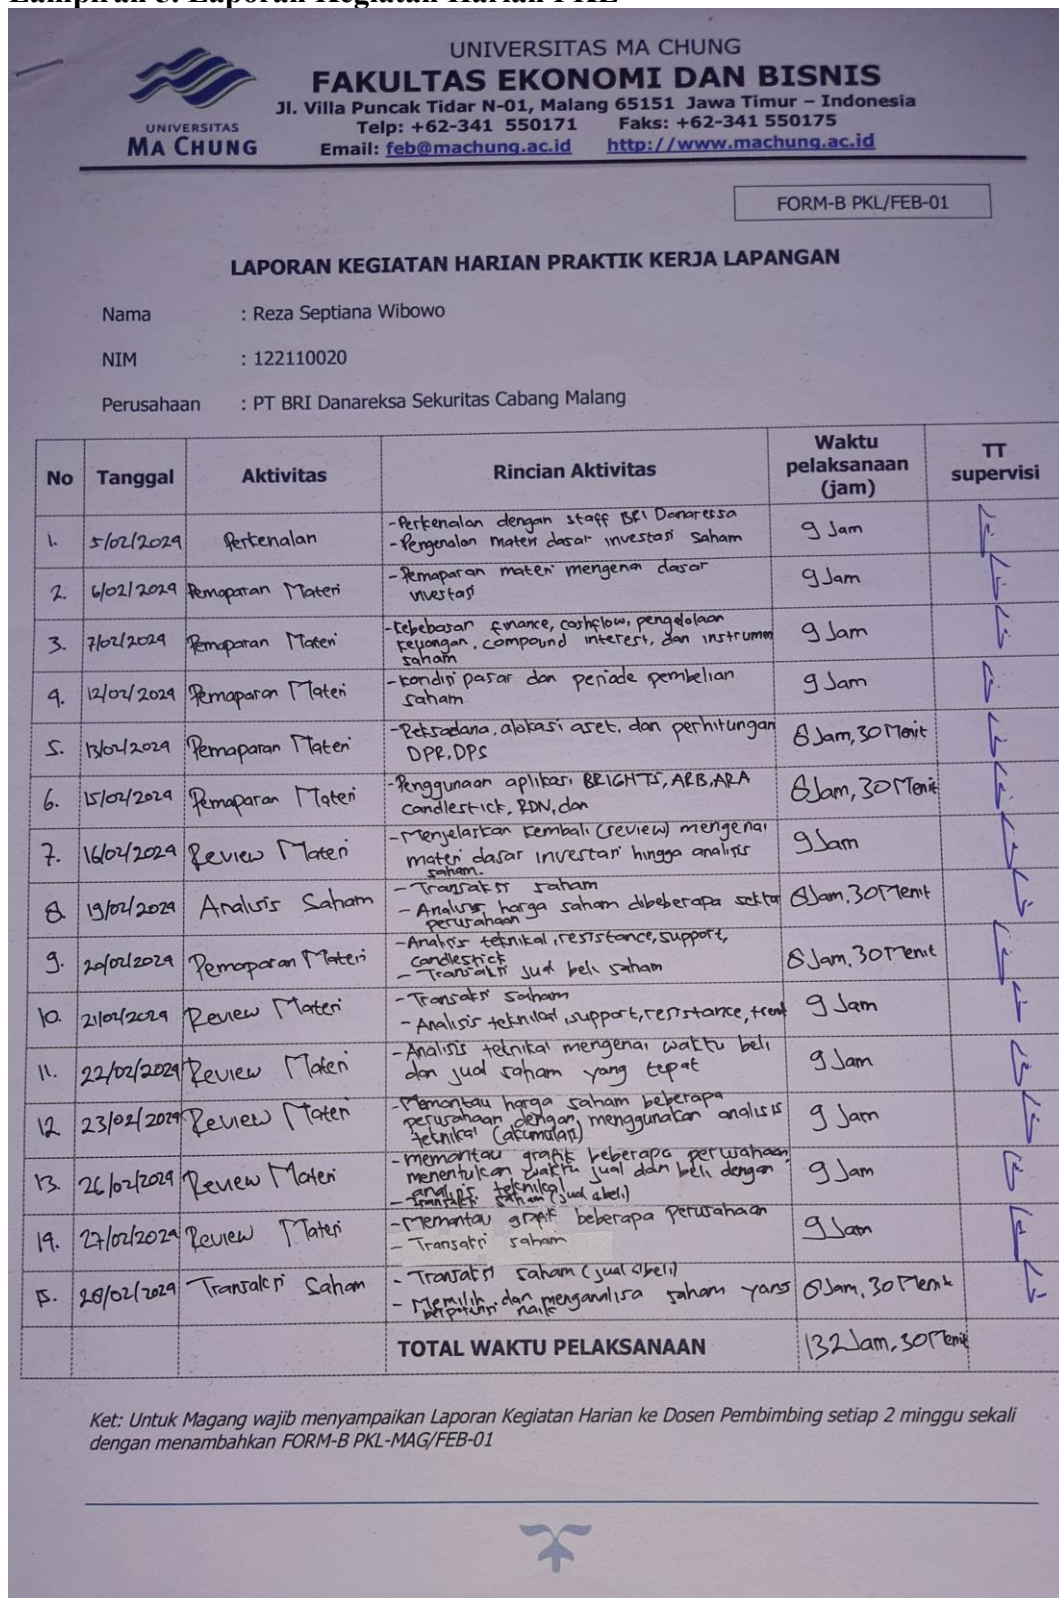 Lampiran 3. Laporan Kegiatan Harian PKL
UNIVERSITAS MA CHUNG
FAKULTAS EKONOMI DAN BISNIS
Jl. Villa Puncak Tidar N-01, Malang 65151 Jawa Timur – Indonesia
Telp: +62-341 550171 Faks: +62-341 550175
Email: feb@machung.ac.id http://www.machung.ac.id
UNIVERSITAS
MA CHUNG
FORM-B PKL/FEB-01
LAPORAN KEGIATAN HARIAN PRAKTIK KERJA LAPANGAN
Nama : Reza Septiana Wibowo
NIM : 122110020
Perusahaan : PT BRI Danareksa Sekuritas Cabang Malang
No Tanggal Aktivitas Rincian Aktivitas Waktu pelaksanaan (jam) TT supervisi
1. 5/02/2024 Perkenalan - Perkenalan dengan staff BRI Danareksa 9 Jam
- Pengenalan materi dasar investasi saham
2. 6/02/2024 Pemaparan Materi - Pemaparan materi mengenai dasar 9 Jam
investasi
3. 7/02/2024 Pemaparan Materi - Kebebasan finance, cashflow, pengelolaan 9 Jam
keuangan, compound interest, dan instrumen
saham
4. 12/02/2024 Pemaparan Materi - Kondisi pasar dan periode pembelian 9 Jam
saham
5. 13/02/2024 Pemaparan Materi - Reksadana, alokasi aset, dan perhitungan 8 Jam, 30 Menit
DPR, DPS
6. 15/02/2024 Pemaparan Materi - Penggunaan aplikasi BRIGHTS, ARB, ARA 8 Jam, 30 Menit
candlestick, RDN, dan
7. 16/02/2024 Review Materi - Menjelaskan kembali (review) mengenai 9 Jam
materi dasar investasi hingga analisis
saham.
8. 19/02/2024 Analisis Saham - Transaksi saham 8 Jam, 30 Menit
- Analisis harga saham dibeberapa sektor
perusahaan
9. 20/02/2024 Pemaparan Materi - Analisis teknikal, resistance, support, 8 Jam, 30 Menit
candlestick
- Transaksi jual beli saham
10. 21/02/2024 Review Materi - Transaksi saham 9 Jam
- Analisis teknikal, support, resistance, trend
11. 22/02/2024 Review Materi - Analisis teknikal mengenai waktu beli 9 Jam
dan jual saham yang tepat
12 23/02/2024 Review Materi - Memantau harga saham beberapa 9 Jam
perusahaan dengan menggunakan analisis
teknikal (akumulasi)
13. 26/02/2024 Review Materi - memantau grafik beberapa perusahaan, 9 Jam
menentukan waktu jual dan beli dengan
analisis teknikal
- Transaksi saham (jual & beli)
14. 27/02/2024 Review Materi - Memantau grafik beberapa perusahaan 9 Jam
- Transaksi saham
15. 28/02/2024 Transaksi Saham - Transaksi saham (jual & beli) 8 Jam, 30 Menit
- Memilih dan menganalisa saham yang
berpotensi naik
TOTAL WAKTU PELAKSANAAN 132 Jam, 30 Menit
Ket: Untuk Magang wajib menyampaikan Laporan Kegiatan Harian ke Dosen Pembimbing setiap 2 minggu sekali
dengan menambahkan FORM-B PKL-MAG/FEB-01